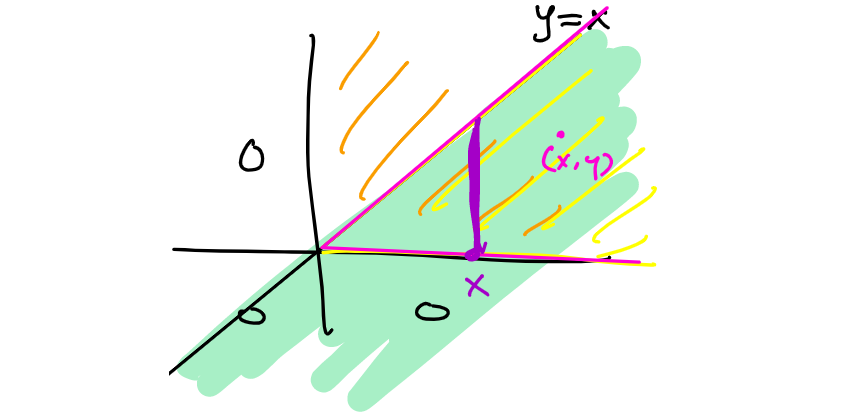 y=x
0
(x,y)
x
0
0